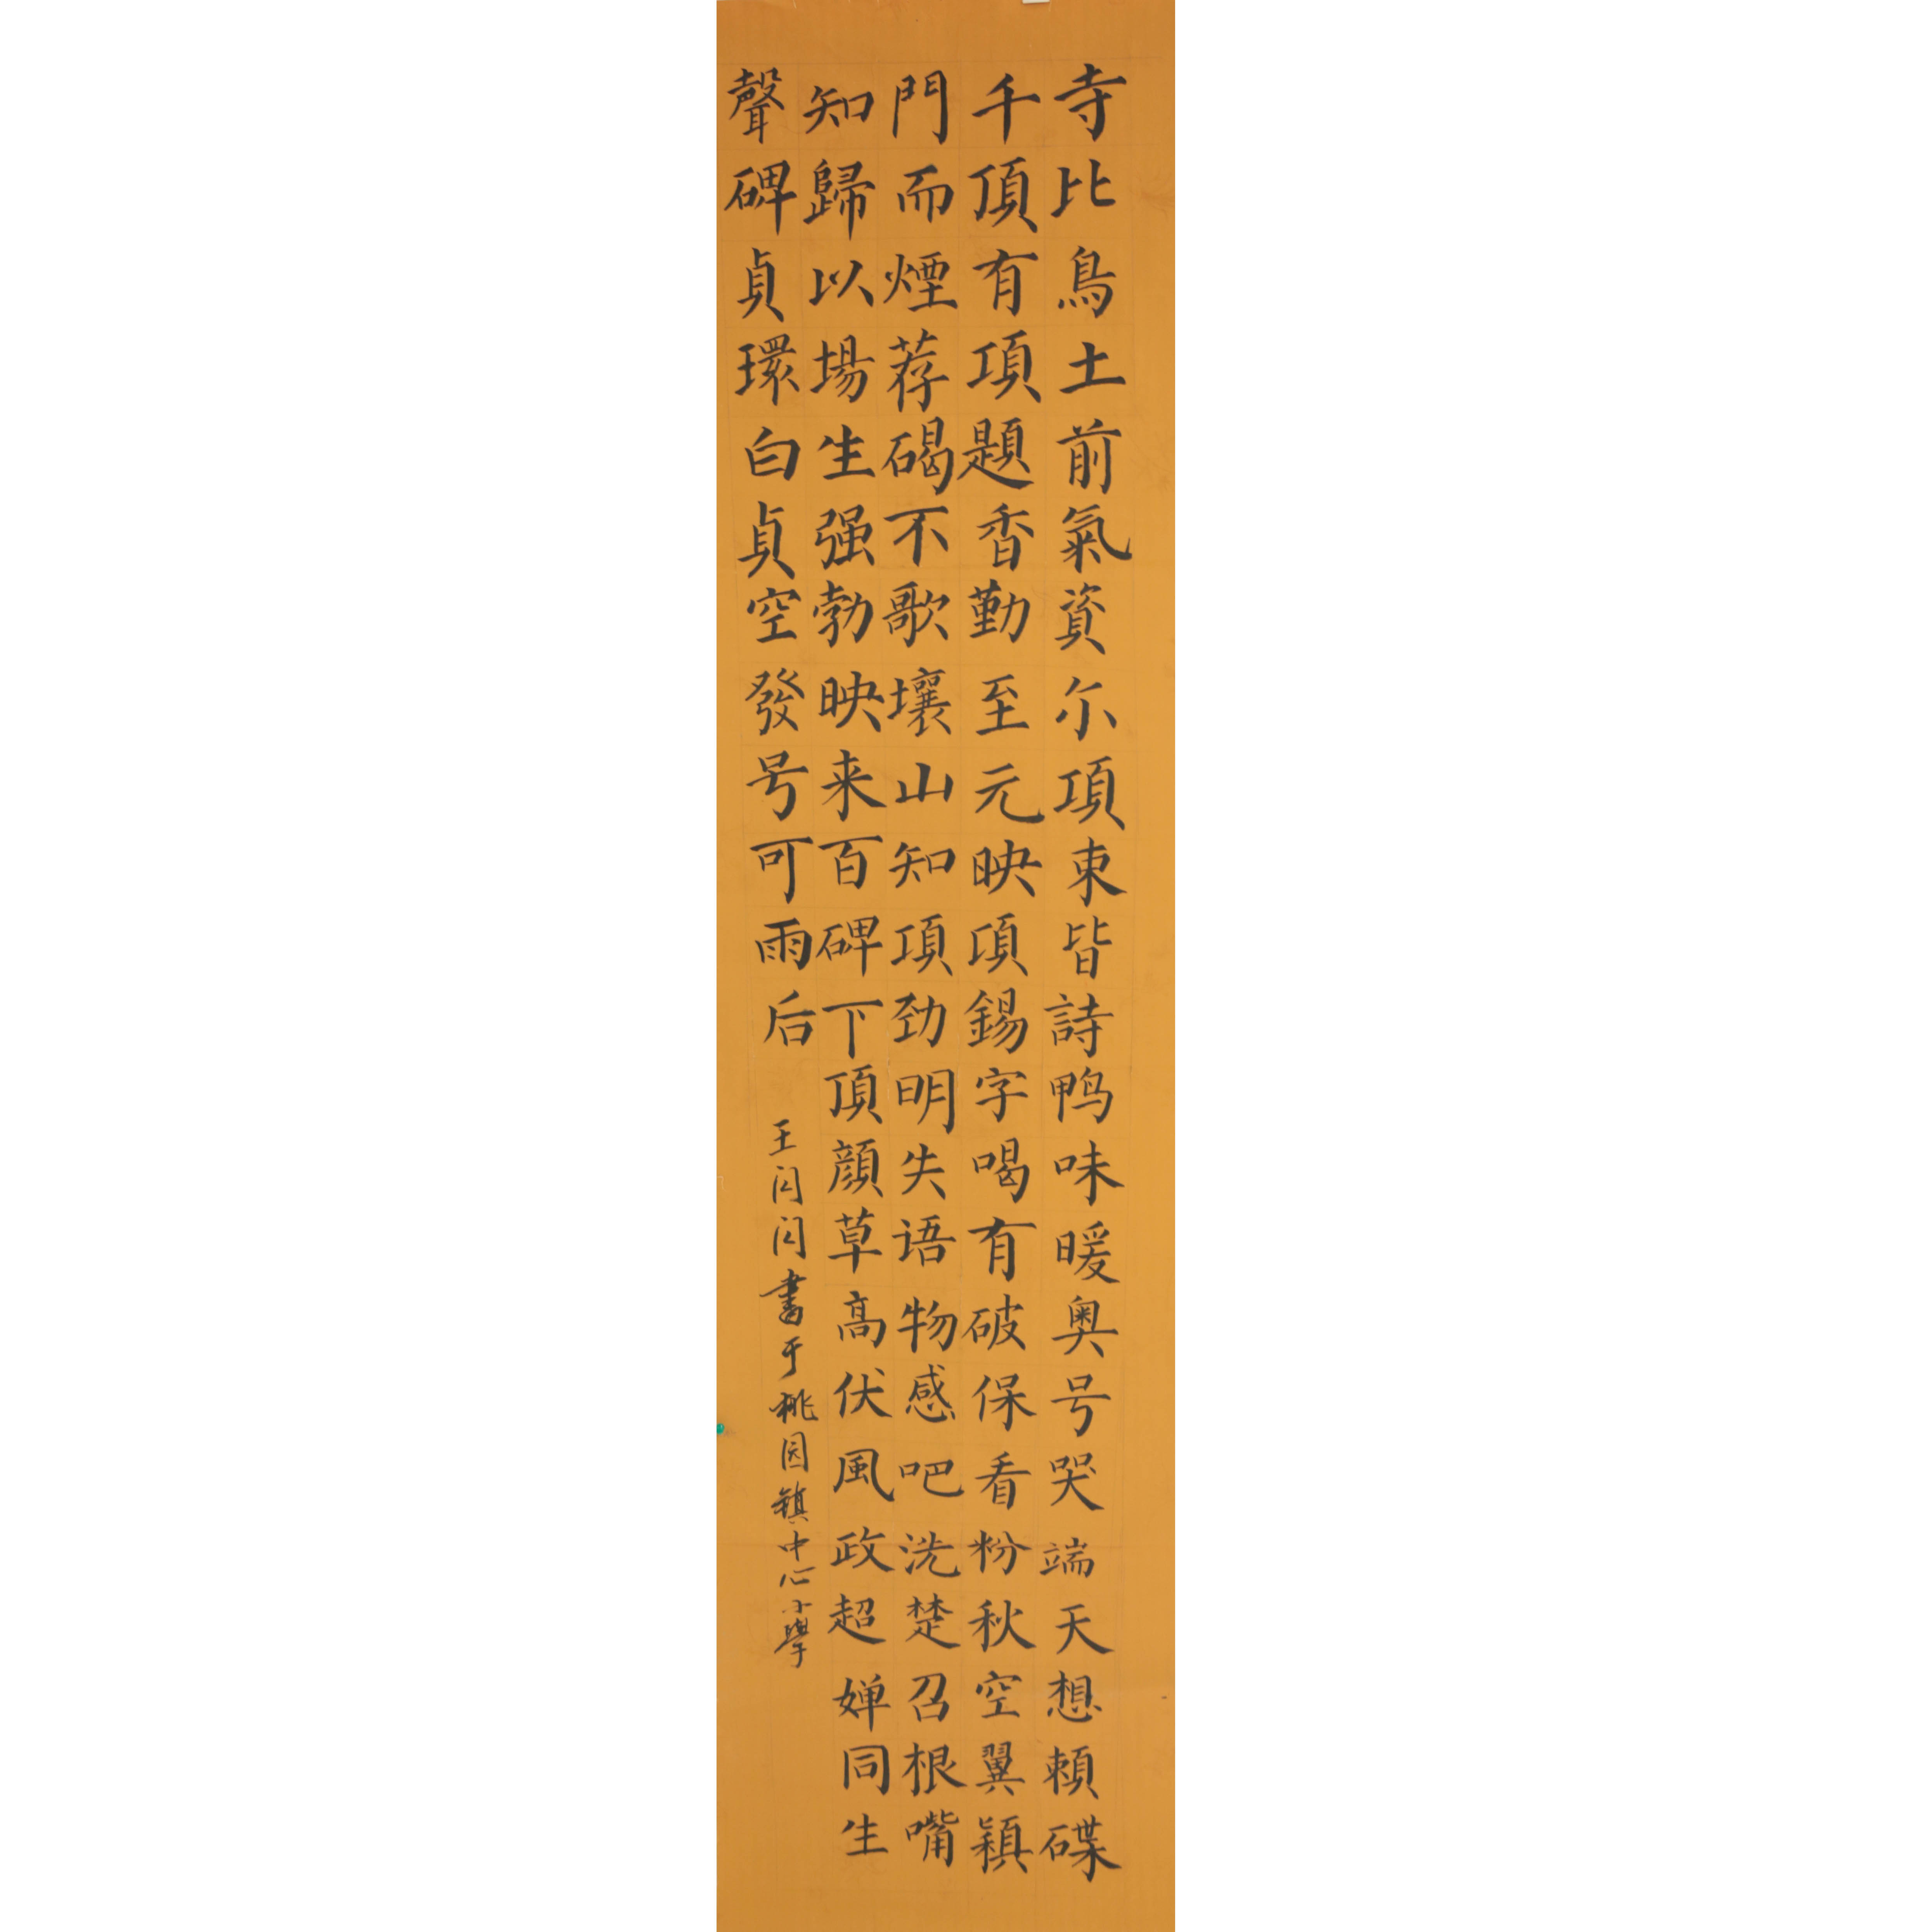 寺比鳥土前氣資尓項束皆詩鸭味暖奥号哭端天想頼碟
千頂有項題香勤至元映項錫字喝有破保看粉秋空翼穎
門而煙荐碣不歌壤山知項劲明失语物感吧洗楚召根嘴
知歸以場生强勃映来百碑下頂顔草高伏風政超婵同生
聲碑貞環白貞空發号可雨后
王闪闪書于桃园镇中心小學